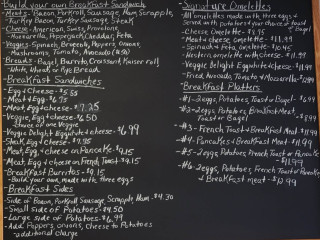 Build your own Breakfast Sandwich
-Meats- Bacon, Porkroll, Sausage, Ham, Scrapple,
Turkey Bacon, Turkey Sausage, Steak
-Cheese- American, Swiss, Provolone,
Mozzarella, Pepperjack, Cheddar, Feta
-Veggies- Spinach, Broccoli, Peppers, Onions,
Mushrooms, Tomato, Avocado
-Breads- Bagel, Burrito, Croissant, Kaiser roll
White, Wheat, or Rye Bread
-Breakfast Sandwiches
-Egg + Cheese- $5.55
-Meat + Egg-
-Meat, Egg + cheese- $7.25
-Veggie, Egg + cheese- $6.50
choice of one veggie
-Veggie Delight Eggwhite + cheese- $6.99
-Steak, Egg + cheese-
-Meat, Egg + cheese on Pancake
-Meat, Egg + cheese on French Toast
-Breakfast Burritos- $9.15
-Build your own, made with three eggs
-Breakfast Sides
-Side of Bacon, Porkroll, Sausage, Scrapple, Ham- $4.30
-Small side of Potatoes- $4.50
-Large side of Potatoes- $6.99
-Add Peppers, onions, Cheese to Potatoes
additional charge
-Signature Omelettes
-All omelettes made with three eggs +
served with potatoes + your choice of toast
Bagel
-Cheese Omelette-
-Meat + cheese omelette-
-Spinach + Feta omelette-
-Western omelette with cheese-
-Veggie Delight Eggwhite-
-Fried Avocado, Tomato + Mozzarella-
-Breakfast Platters
-#1- 2 eggs, Potatoes, Toast or Bagel-
-#2- 2 eggs, Potatoes, Breakfast Meat
Toast or Bagel
-#3- French Toast + Breakfast Meat-
-#4- Pancakes + Breakfast Meat
-#5- 2 eggs, Potatoes, French Toast or Pancakes
-#6- 2 eggs, Potatoes, French Toast or Pancakes
Breakfast meat-